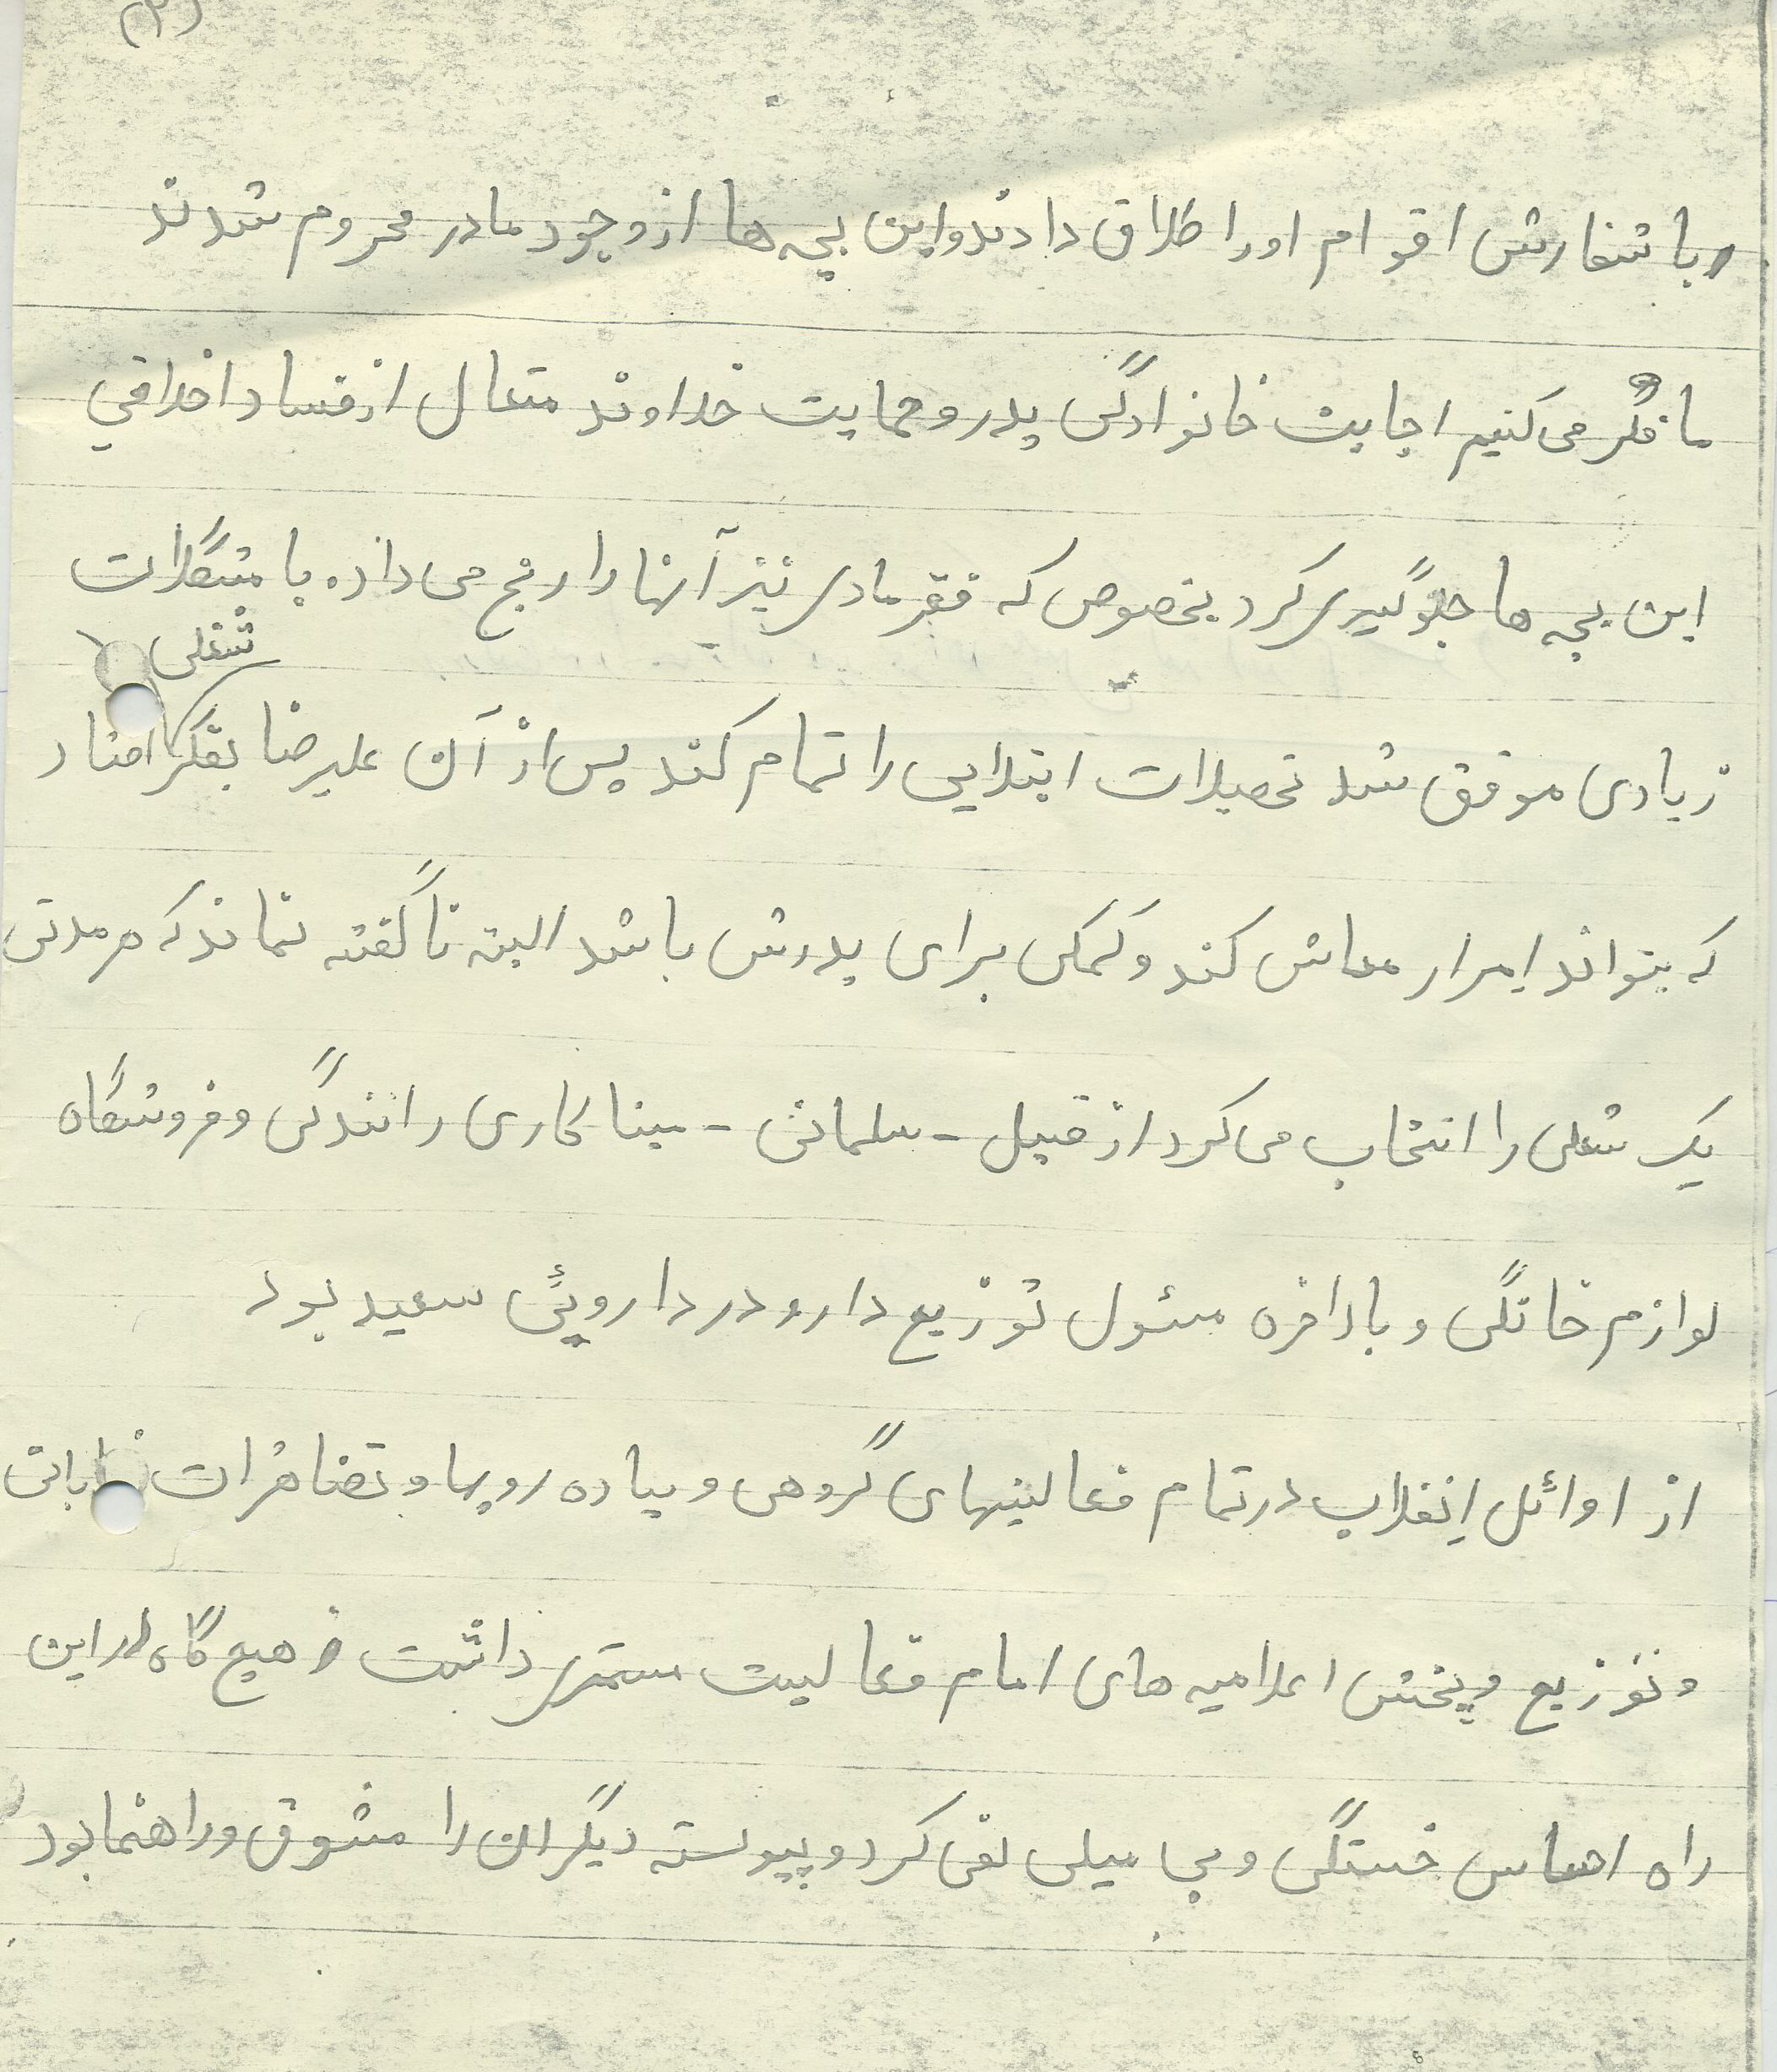 (۲)
وبا شفارش اقوام اورا طلاق دادند واین بچه ها از وجود مادر محروم شدند
ما فکر می کنیم اجابت خانوادگی پدر و حمایت خداوند متعال از فساد اخلاقی
این بچه ها جلوگیری کرد بخصوص که فقر مادی نیز آنها را رنج می داد. با مشکلات
شغلی
زیادی موفق شد تحصیلات ابتدایی را تمام کند پس از آن علیرضا بفکر افتاد
که بتواند امرار معاش کند و کمکی برای پدرش باشد البته ناگفته نماند که هر مدتی
یک شغلی را انتخاب می کرد از قبیل - سلمانی - مینا کاری رانندگی و فروشگاه
لوازم خانگی و بالاخره مسئول توزیع دارو در داروئی سعید بود
از اوائل انقلاب در تمام فعالیتهای گروهی و پیاده رویها و تضاهرات
و توزیع و پخش اعلامیه های امام فعالیت مستمری داشت و هیچ گاه در این
راه احساس خستگی و بی میلی نمی کرد و پیوسته دیگران را مشوق و راهنما بود